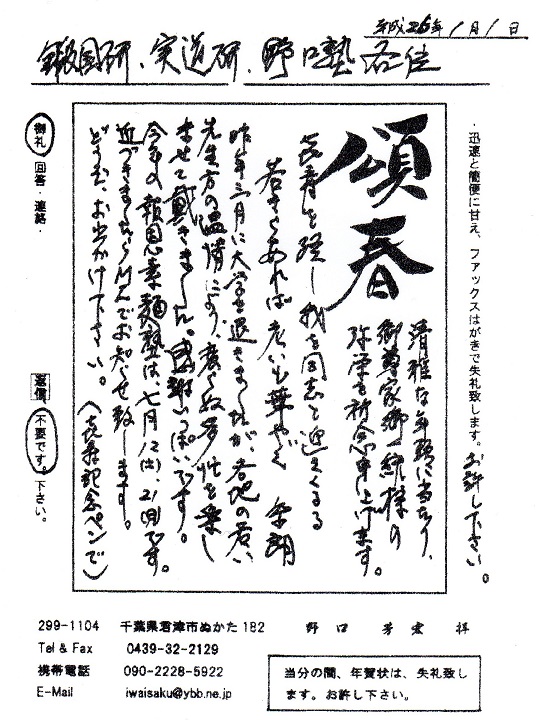 平成26年1月1日
鍛国研、実道研、野口塾 各位
・迅速と簡便に甘え、ファックスはがきで失礼致します。お許し下さい。
頌春
清雅な年頭に当たり、
御尊家御一統様の
弥栄を祈念申し上げます。
喜寿を経し我を同志と迎えくるる
若きらあれば老いも華やぐ
昨年三月に大学を退きましたが、各地の若い
先生方の温情により、変らぬ多忙を楽し
ませて戴きました。感謝いっぱいです。
今年の報恩素麺塾は、七月 (土)、21(月)です。
近づきましたらハガキでお知らせ致します。
どうぞ、お出かけ下さい。(喜寿記念ペンで)
御礼・回答・連絡・
返信、不要です。下さい。
299-1104 千葉県君津市ぬかた182 野口芳宏 拝
Tel & Fax 0439-32-2129
携帯電話 090-2228-5922
E-Mail iwaisaku@ybb.ne.jp
当分の間、年賀状は、失礼致し
ます。お許し下さい。